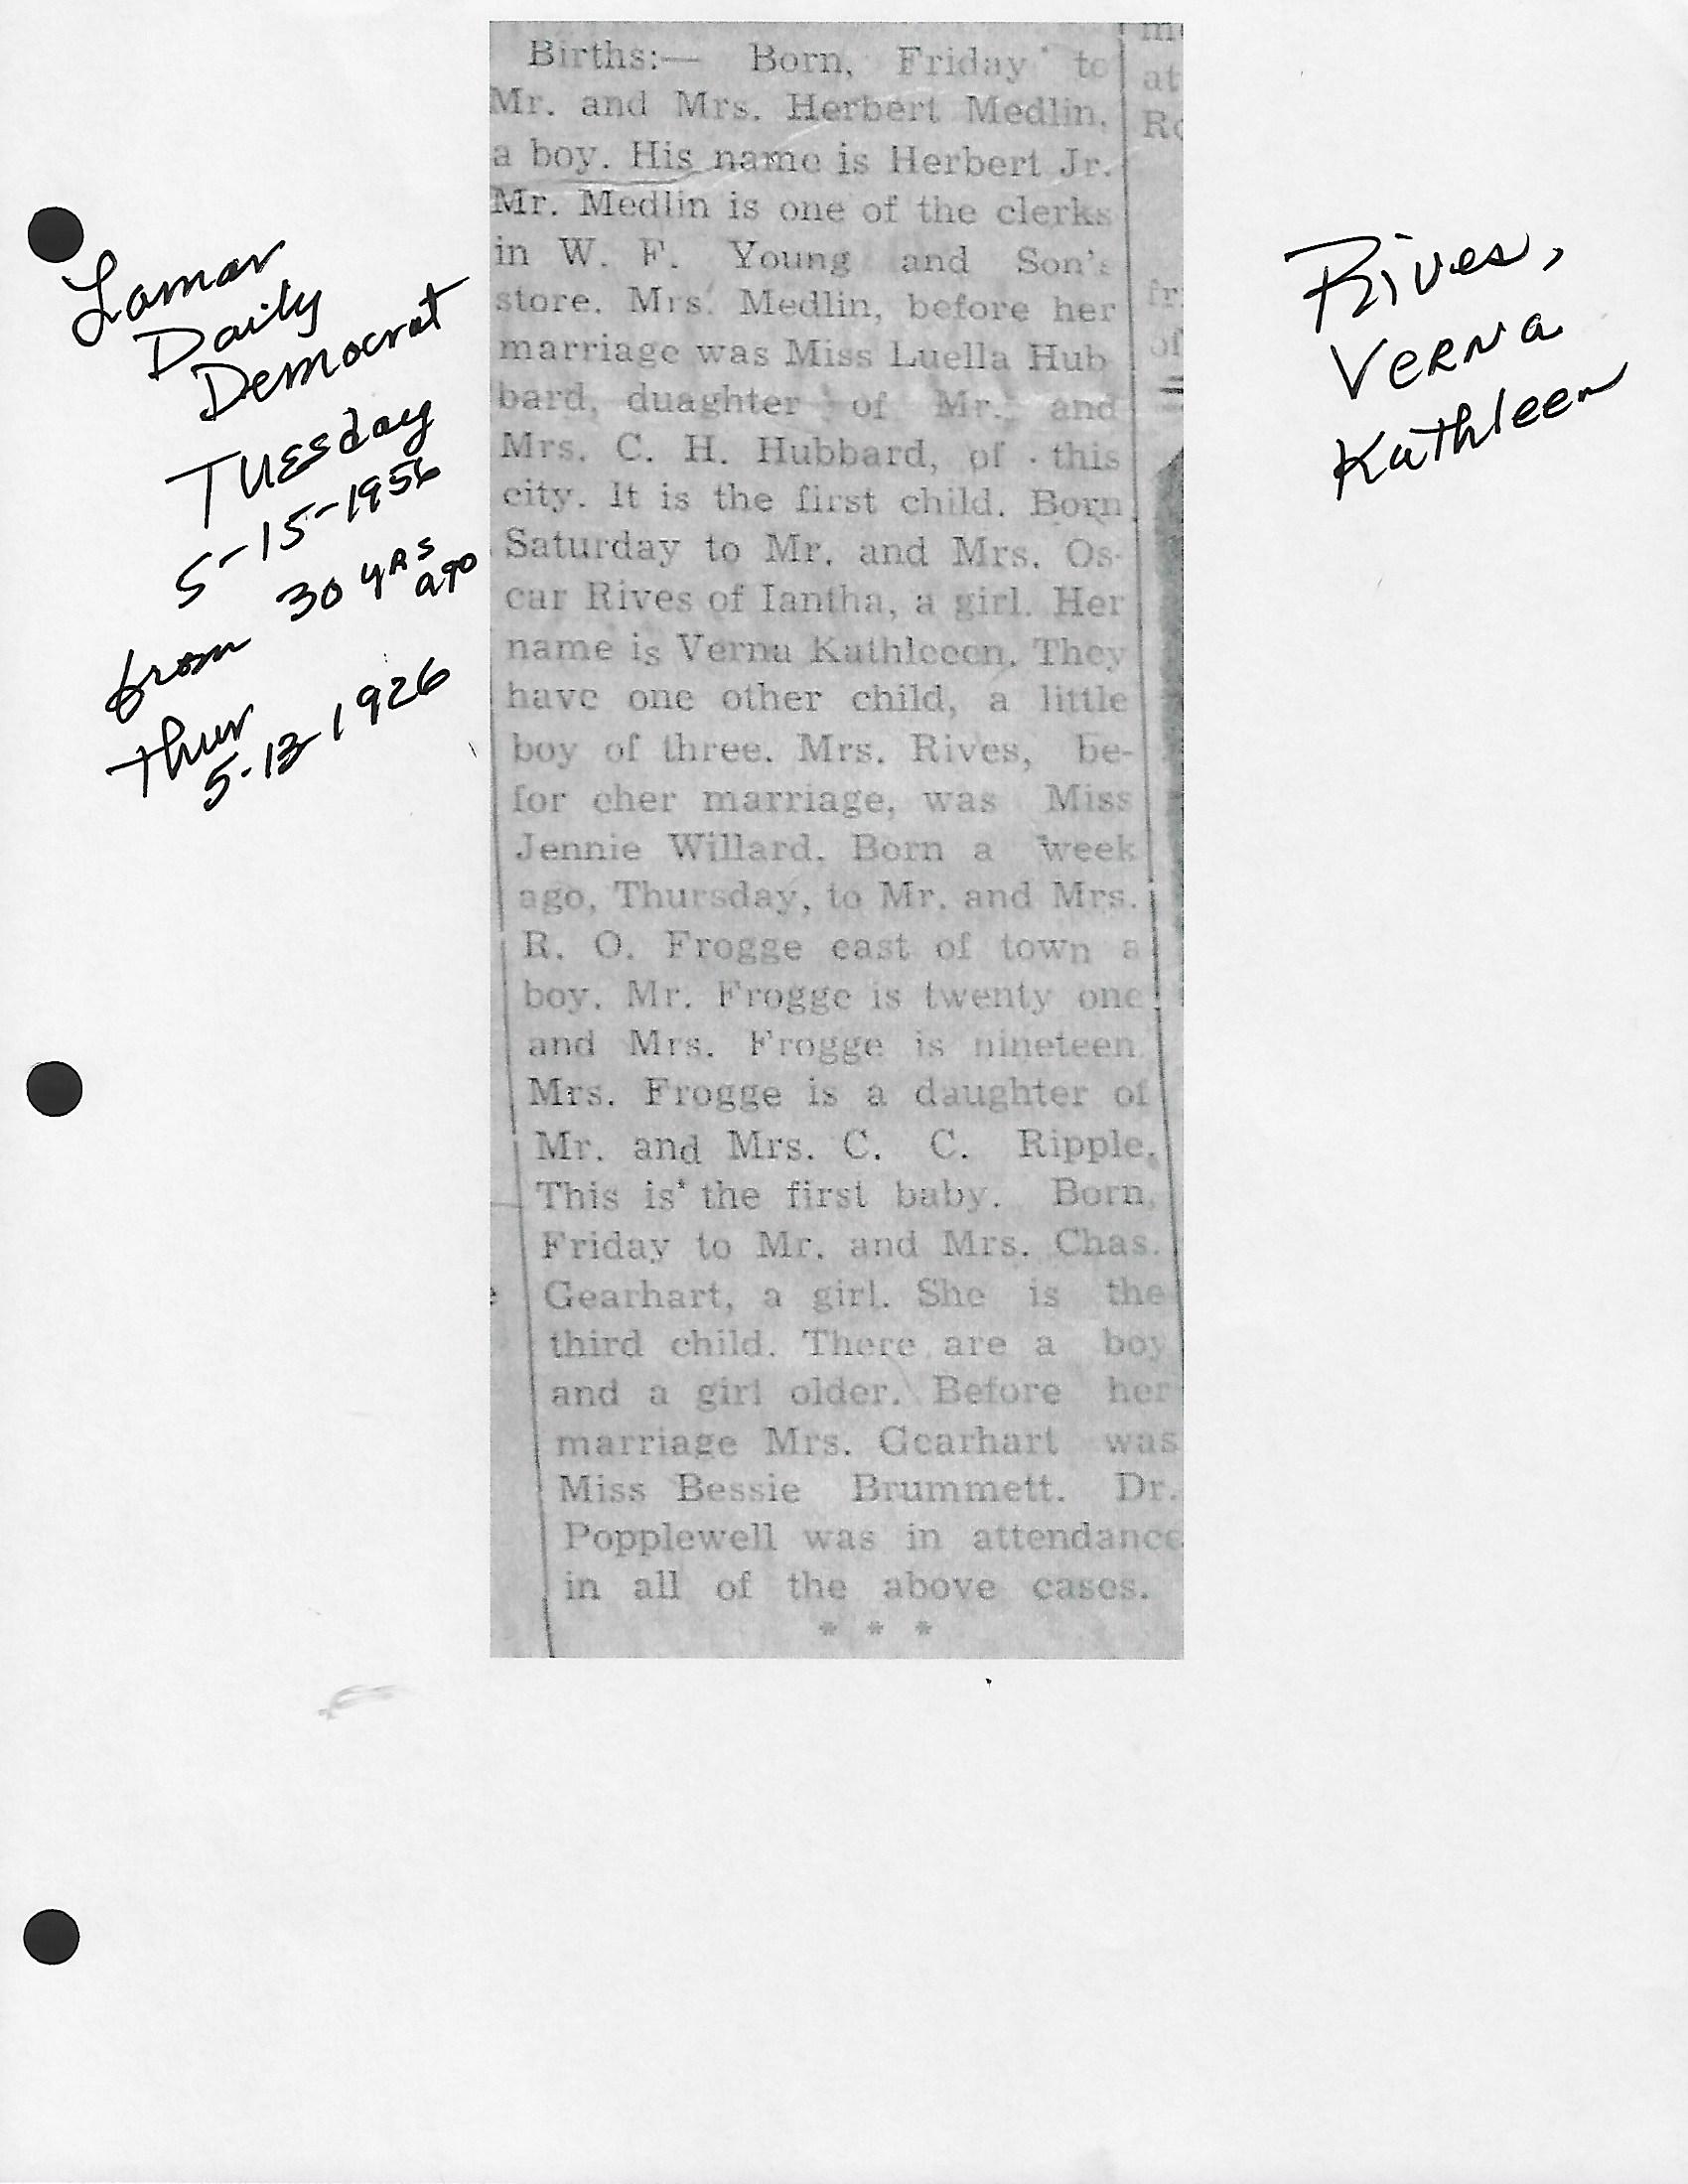 Lamar
Daily
Democrat
Tuesday
5-15-1956
from 30 yrs ago
thur
5-13-1926
Births:— Born, Friday to
Mr. and Mrs. Herbert Medlin,
a boy. His name is Herbert Jr.
Mr. Medlin is one of the clerks
in W. F. Young and Son's
store. Mrs. Medlin, before her
marriage was Miss Luella Hub
bard, duaghter of Mr. and
Mrs. C. H. Hubbard, of this
city. It is the first child. Born
Saturday to Mr. and Mrs. Os-
car Rives of Iantha, a girl. Her
name is Verna Kathleeen. They
have one other child, a little
boy of three. Mrs. Rives, be-
for cher marriage, was Miss
Jennie Willard. Born a week
ago, Thursday, to Mr. and Mrs.
R. O. Frogge east of town a
boy. Mr. Frogge is twenty one
and Mrs. Frogge is nineteen.
Mrs. Frogge is a daughter of
Mr. and Mrs. C. C. Ripple.
This is the first baby. Born,
Friday to Mr. and Mrs. Chas.
Gearhart, a girl. She is the
third child. There are a boy
and a girl older. Before her
marriage Mrs. Gearhart was
Miss Bessie Brummett. Dr.
Popplewell was in attendance
in all of the above cases.
* * *
at
fr
of
Rives,
Verna
Kathleen